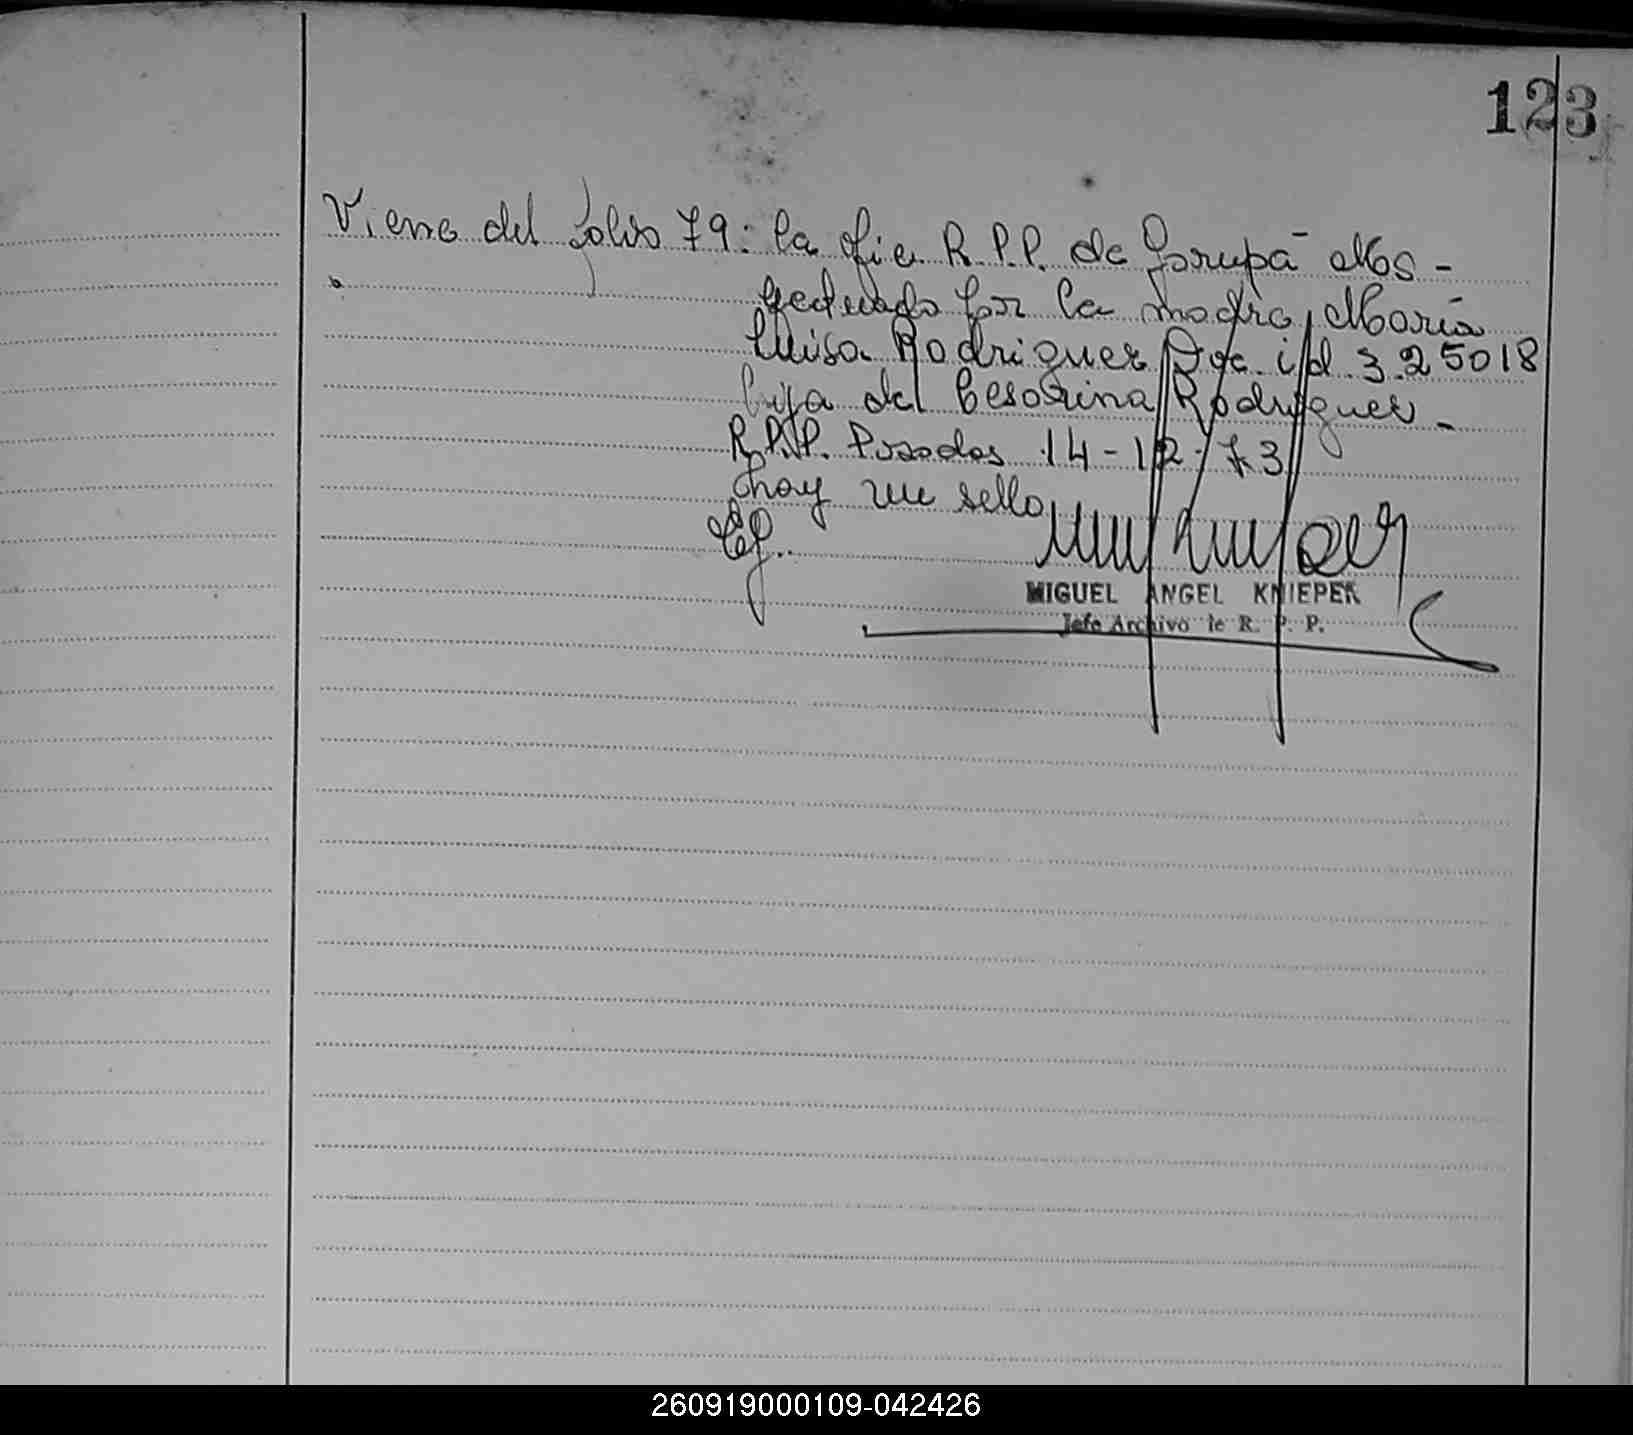 123
Viene del folio 79: la ofic. R.P.P. de Garupá Ms -
fectuado por la madre María
Luisa Rodriguez Doc. id. 3.325018
hija de Cesarina Rodriguez -
R.P.P. Posadas 14-12-73
hay un sello
MIGUEL ANGEL KNIEPER
Jefe Archivo de R. P. P.
260919000109-042426